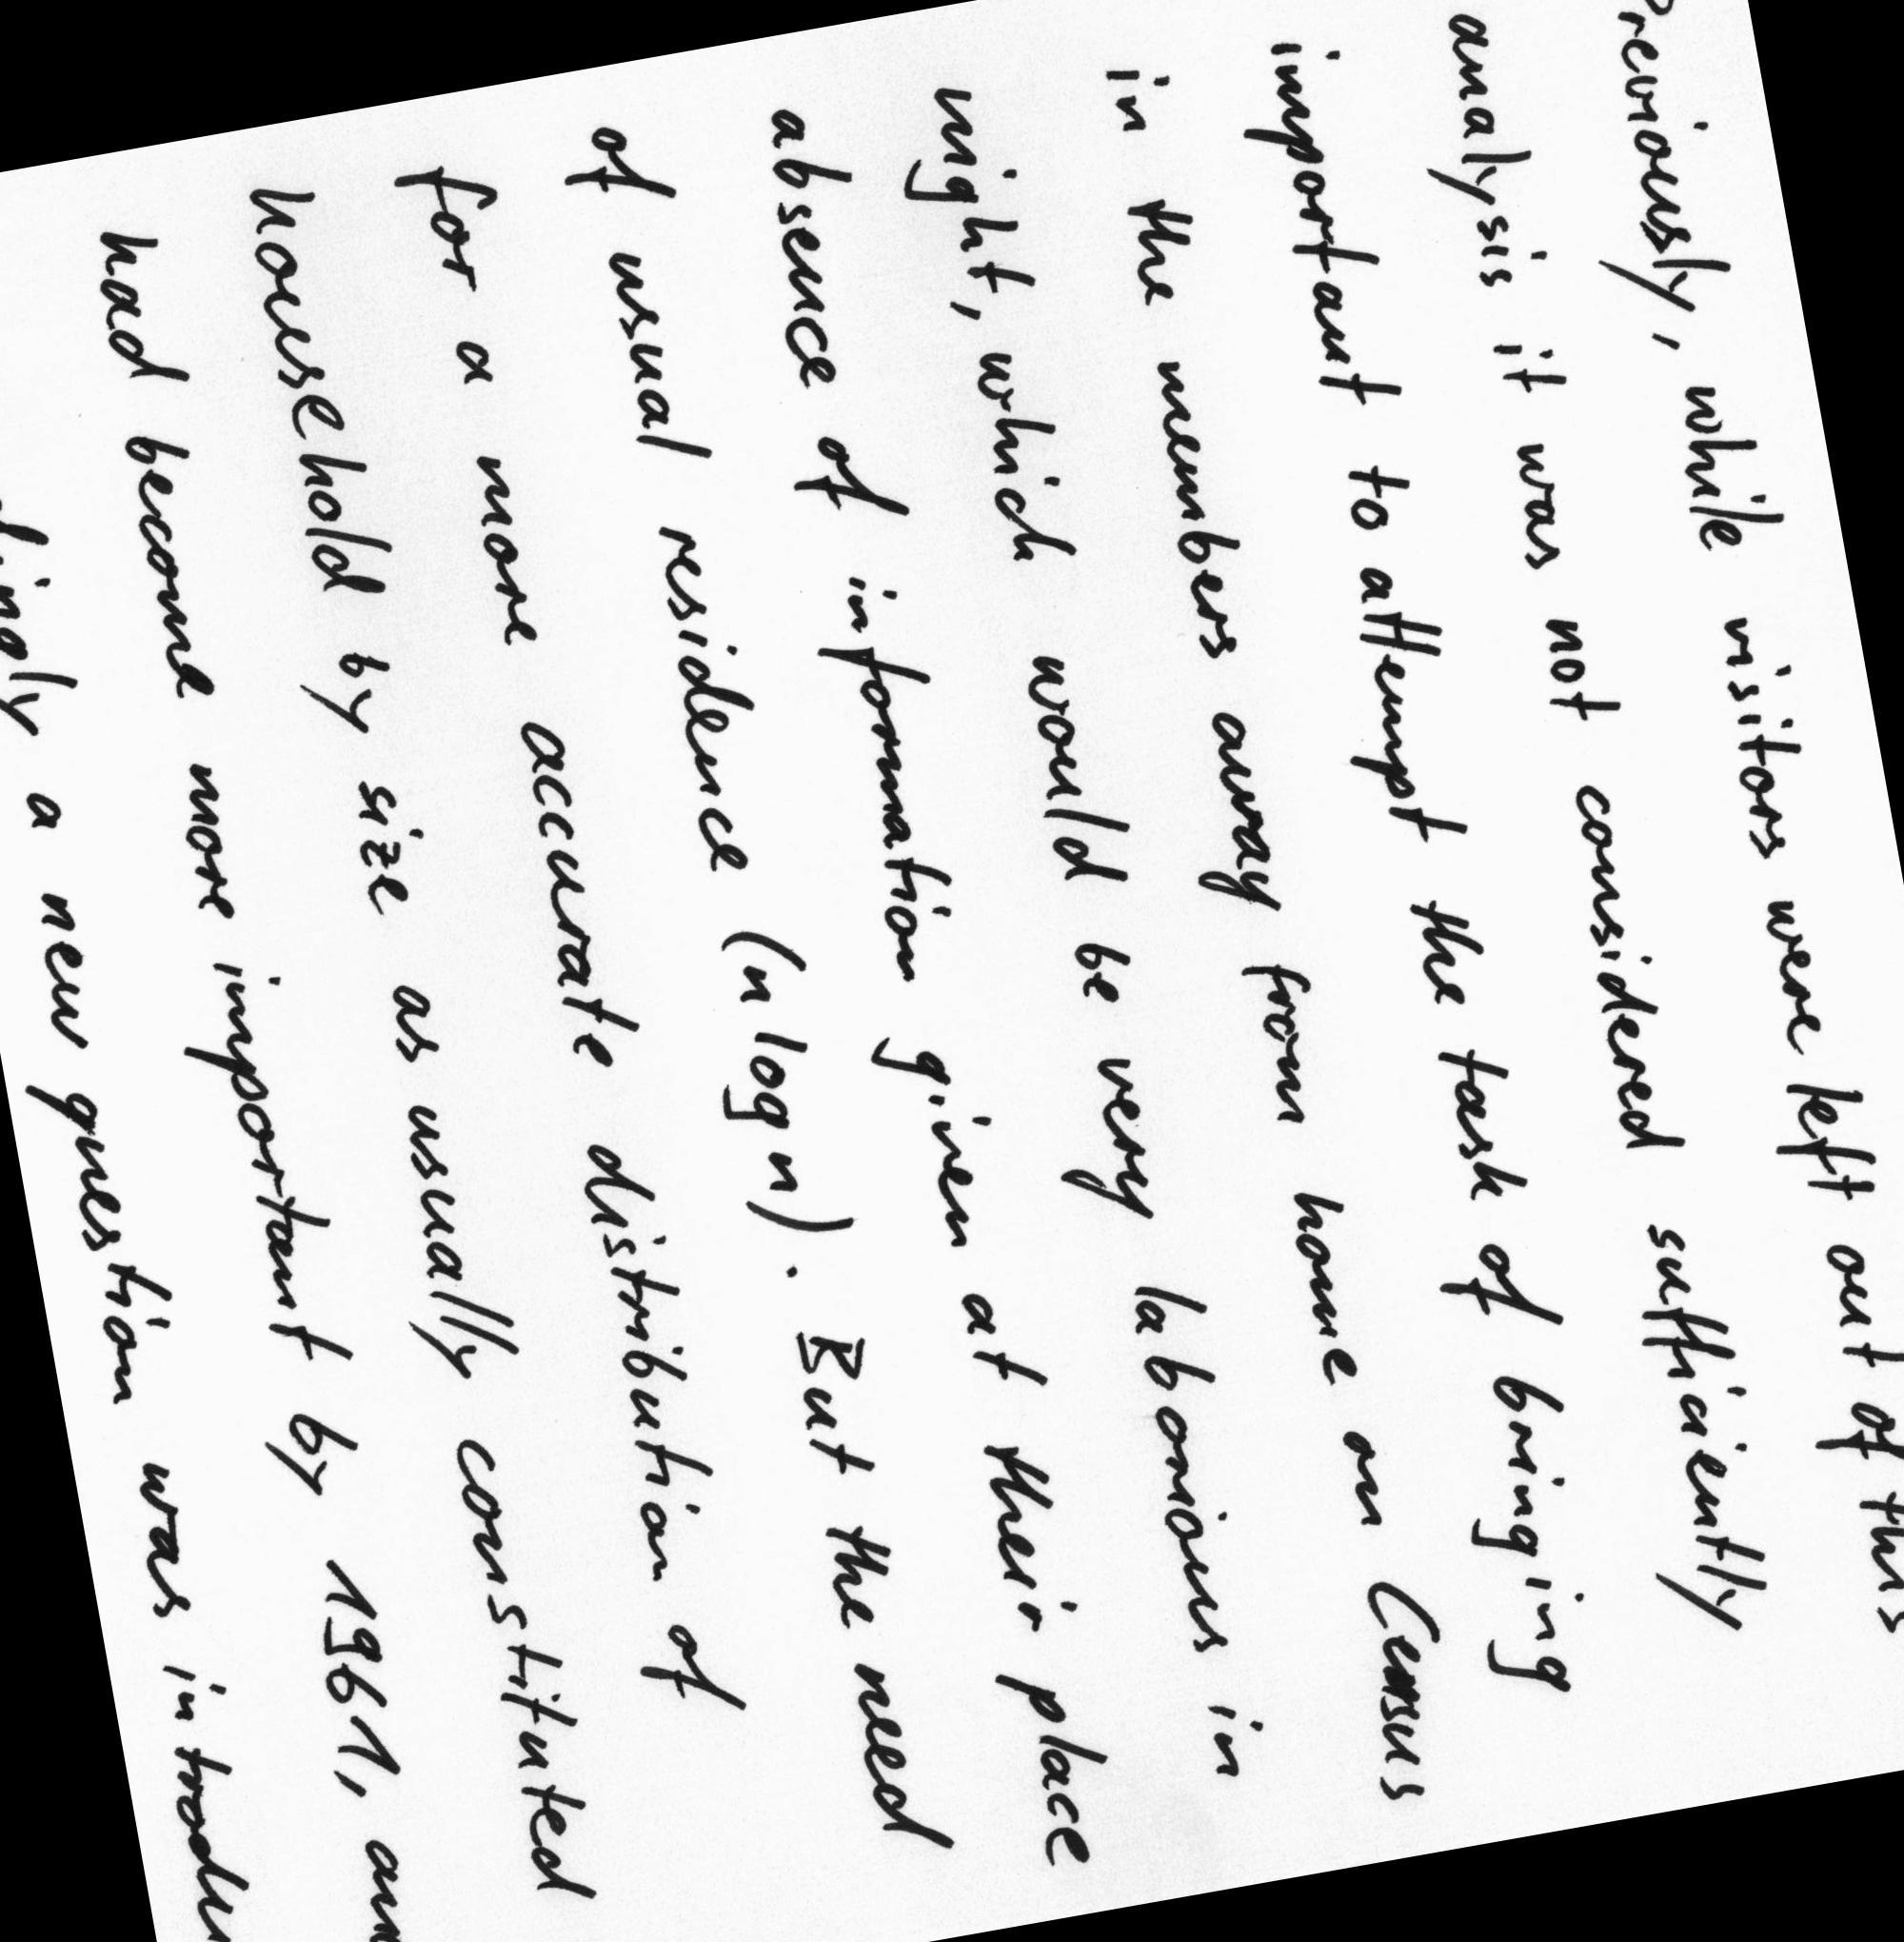 Previously, while visitors were left out of this
analysis it was not considered sufficiently
important to attempt the task of bringing
in the members away from home on Census
night, which would be very laborious in
absence of information given at their place
of usual residence (n log n). But the need
for a more accurate distribution of
household by size as usually constituted
had become more important by 1961, an
a new question was introdu